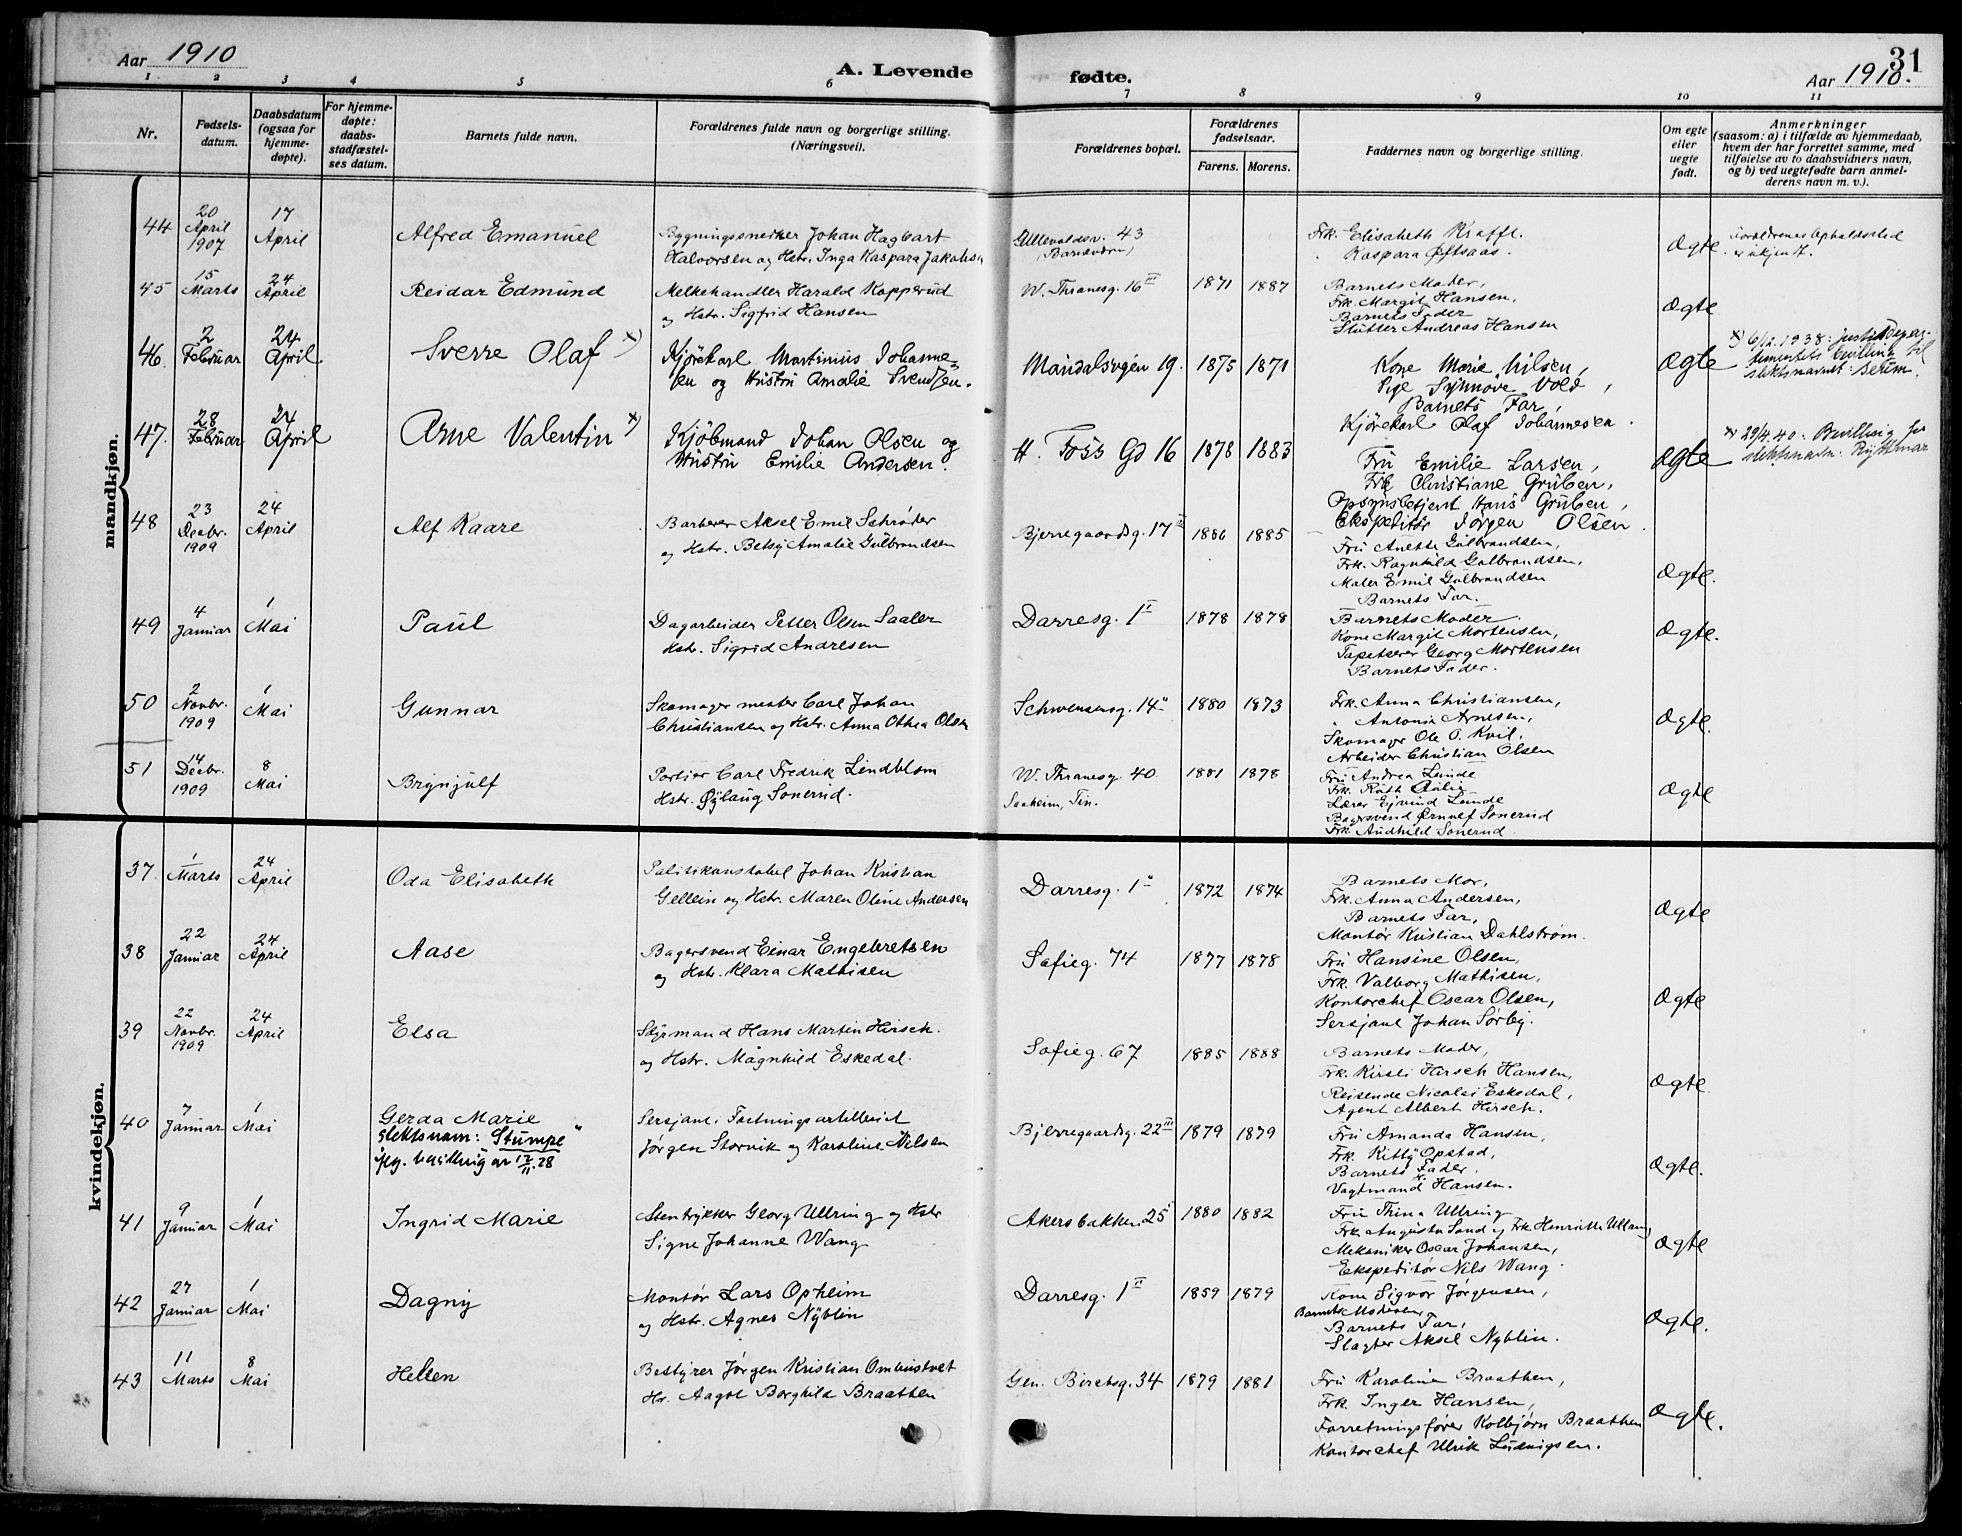 Aar 1910
A. Levende fødte.
31
Aar 1910.
1. 2 3 4 5 6 7 8 9 10 11
Nr.
Fødsels-
datum.
Daabsdatum
(ogsaa for
hjemme-
døpte).
For hjemme-
døpte:
daabs-
stadfæstel-
ses datum.
Barnets fulde navn.
Forældrenes fulde navn og borgerlige stilling.
(Næringsveil).
Forældrenes bopæl.
Forældrenes
fødselsaar.
Farens. Morens.
Faddernes navn og borgerlige stilling.
Om egte
eller
uegte
født.
Anmerkninger
(saasom: a) i tilfælde av hjemmedaab,
hvem der har forrettet samme, med
tilføielse av to daabsvidners navn,
og b) ved uegtefødte barn anmel-
derens navn m. v.).
mandkjøn.
44
20
April
1907
17
April
Alfred Emanuel
Bygningssnedker Johan Hagbart
Halvorsen og Hstr. Inga Kaspara Jakobsen
Ullevoldsv. 43
Frk. Elisabeth Krafft.
Kaspara Øftsaas.
Ægte
Forældrenes Opholdssted
er ukjendt.
45
15
Marts
24
April
Reidar Edmund
Melkehandler Harald Kopperud
og Hstr. Sigfrid Hansen
W. Thranesg. 16 III
1871 1887
Barnets Moder,
Frk. Margit Hansen,
Barnets Fader
Slutter Andreas Hansen
Ægte
46.
2
Februar
24
April
Sverre Olaf x)
Kjørekarl Martinius Johanne-
sen og Hustru Amalie Svendsen.
Maridalsvgen 19.
1875 1871
Kone Marie Nilsen,
Pige Synnøve Vold,
Barnets Far,
Kjørekarl Olaf Johannesen.
Ægte
x) 6/12.1938: justisdepar-
tementets bevilling til
slektsnavnet: Berum.
47.
28
Februar
24
April
Arne Valentin x)
Kjøbmand Johan Olsen og
Hustru Emilie Andersen.
H. Foss Gd 16
1878 1883
Fru Emilie Larsen,
Frk Christiane Gruben,
Opsynsbetjent Hans Gruben,
Ekspeditør Jørgen Olsen.
Ægte
x) 29/4.40. Bevilling for
slektsnavn:
48
23
Decbr.
1909
24
April
Alf Kaare
Barberer Aksel Emil Schrøder
og Hstr. Betsy Amalie Gulbrandsen
Bjerregaardsg. 17 II
1886 1885
Fru Anette Gulbrandsen,
Frk. Ragnhild Gulbrandsen,
Maler Emil Gulbrandsen
Barnets Far.
Ægte.
49
4
Januar
1
Mai
Paul
Dagarbeider Petter Olsen Saaler
Hstr. Sigrid Andresen
Darresg. 1 I
1878 1878
Barnets Moder.
Kone Margit Mortensen,
Tapetserer Georg Mortensen
Barnets Fader.
Ægte.
50
2
Novbr.
1909
1
Mai
Gunnar
Skomagermester Carl Johan
Christiansen og Hstr. Anna Othea Olsen
Schwensensg. 14"
1880 1873
Frk. Anna Christiansen,
" Antonie Arnesen,
Skomager Ole O. Kvil.
Arbeider Christian Olsen
Ægte.
51
14
Decbr.
1909
8
Mai
Brynjulf
Portier Carl Fredrik Lindblom
Hstr. Øylaug Sonerud.
W. Thranesg. 40
Saaheim, Tin.
1881 1878
Fru Andrea Lunde
Frk. Ruth
Lærer Ejvind Lunde
Bagersvend Ørnulf Sonerud
Frk. Audhild Sonerud
Ægte
kvindekjøn.
37.
1
Marts
24
April
Oda Elisabeth
Politikonstabel Johan Kristian
Gellein og Hstr. Maren Oline Andersen
Darresg. 1"
1872 1874
Barnets Mor,
Frk. Anna Andersen,
Barnets Far,
Montør Kristian Dahlstrøm.
Ægte
38
22
Januar
24
April
Aase
Bagersvend Einar Engebretsen
og Hstr. Klara Mathisen
Sofieg. 74
1877 1878
Fru Hansine Olsen,
Frk. Valborg Mathisen,
Kontorchef Oscar Olsen,
Sersjant Johan Sørby.
Ægte
39
22
Novbr.
1909
24
April
Elsa
Styrmand Hans Martin Hirsch.
og Hstr. Magnhild Eskedal.
Sofieg. 67
1885 1888
Barnets Moder,
Frk. Kirsti Hirsch Hansen,
Reisende Nicolai Eskedal,
Agent Albert Hirsch.
Ægte
40
7
Januar
1
Mai
Gerda Marie
slektsnavn: Stumpe"
iflg. bevilling av 12/11.28
Sersjant i Fæstningsartilleriet
Jørgen Storvik og Karoline Nilsen
Bjerregaardsg. 22 III
1879 1879
Fru Amanda Hansen,
Frk. Kitty Opstad,
Barnets Fader.
Vagtmand Hansen.
Ægte.
41
9
Januar
1
Mai
Ingrid Marie
Stentrykker Georg Ullring og Hstr
Signe Johanne Wang
Akersbakken 25
1880 1882
Fru Thina Ullring
Frk Augusta Sand og Frk Henriette Ullring
Mekaniker Oscar Johansen,
Ekspeditør Nils Wang.
Ægte
42
27
Januar
1
Mai
Dagny
Montør Lars Opheim
og Hstr. Agnes Nyblin
Darresg. 1 II
1859 1879
Kone Sigvor Jørgensen,
Barnets Moder,
Barnets Far,
Slagter Aksel Nyblin.
Ægte.
43
11
Marts
8
Mai
Hellen
Bestyrer Jørgen Kristian Ombustvet
Hr. Aagot Borghild Braathen
Gen. Birchsg. 34
1879 1881
Fru Karoline Braathen,
Frk. Inger Hansen,
Forretningsfører Kolbjørn Braathen
Kontorchef Ulrik Ludvigsen.
Ægte.